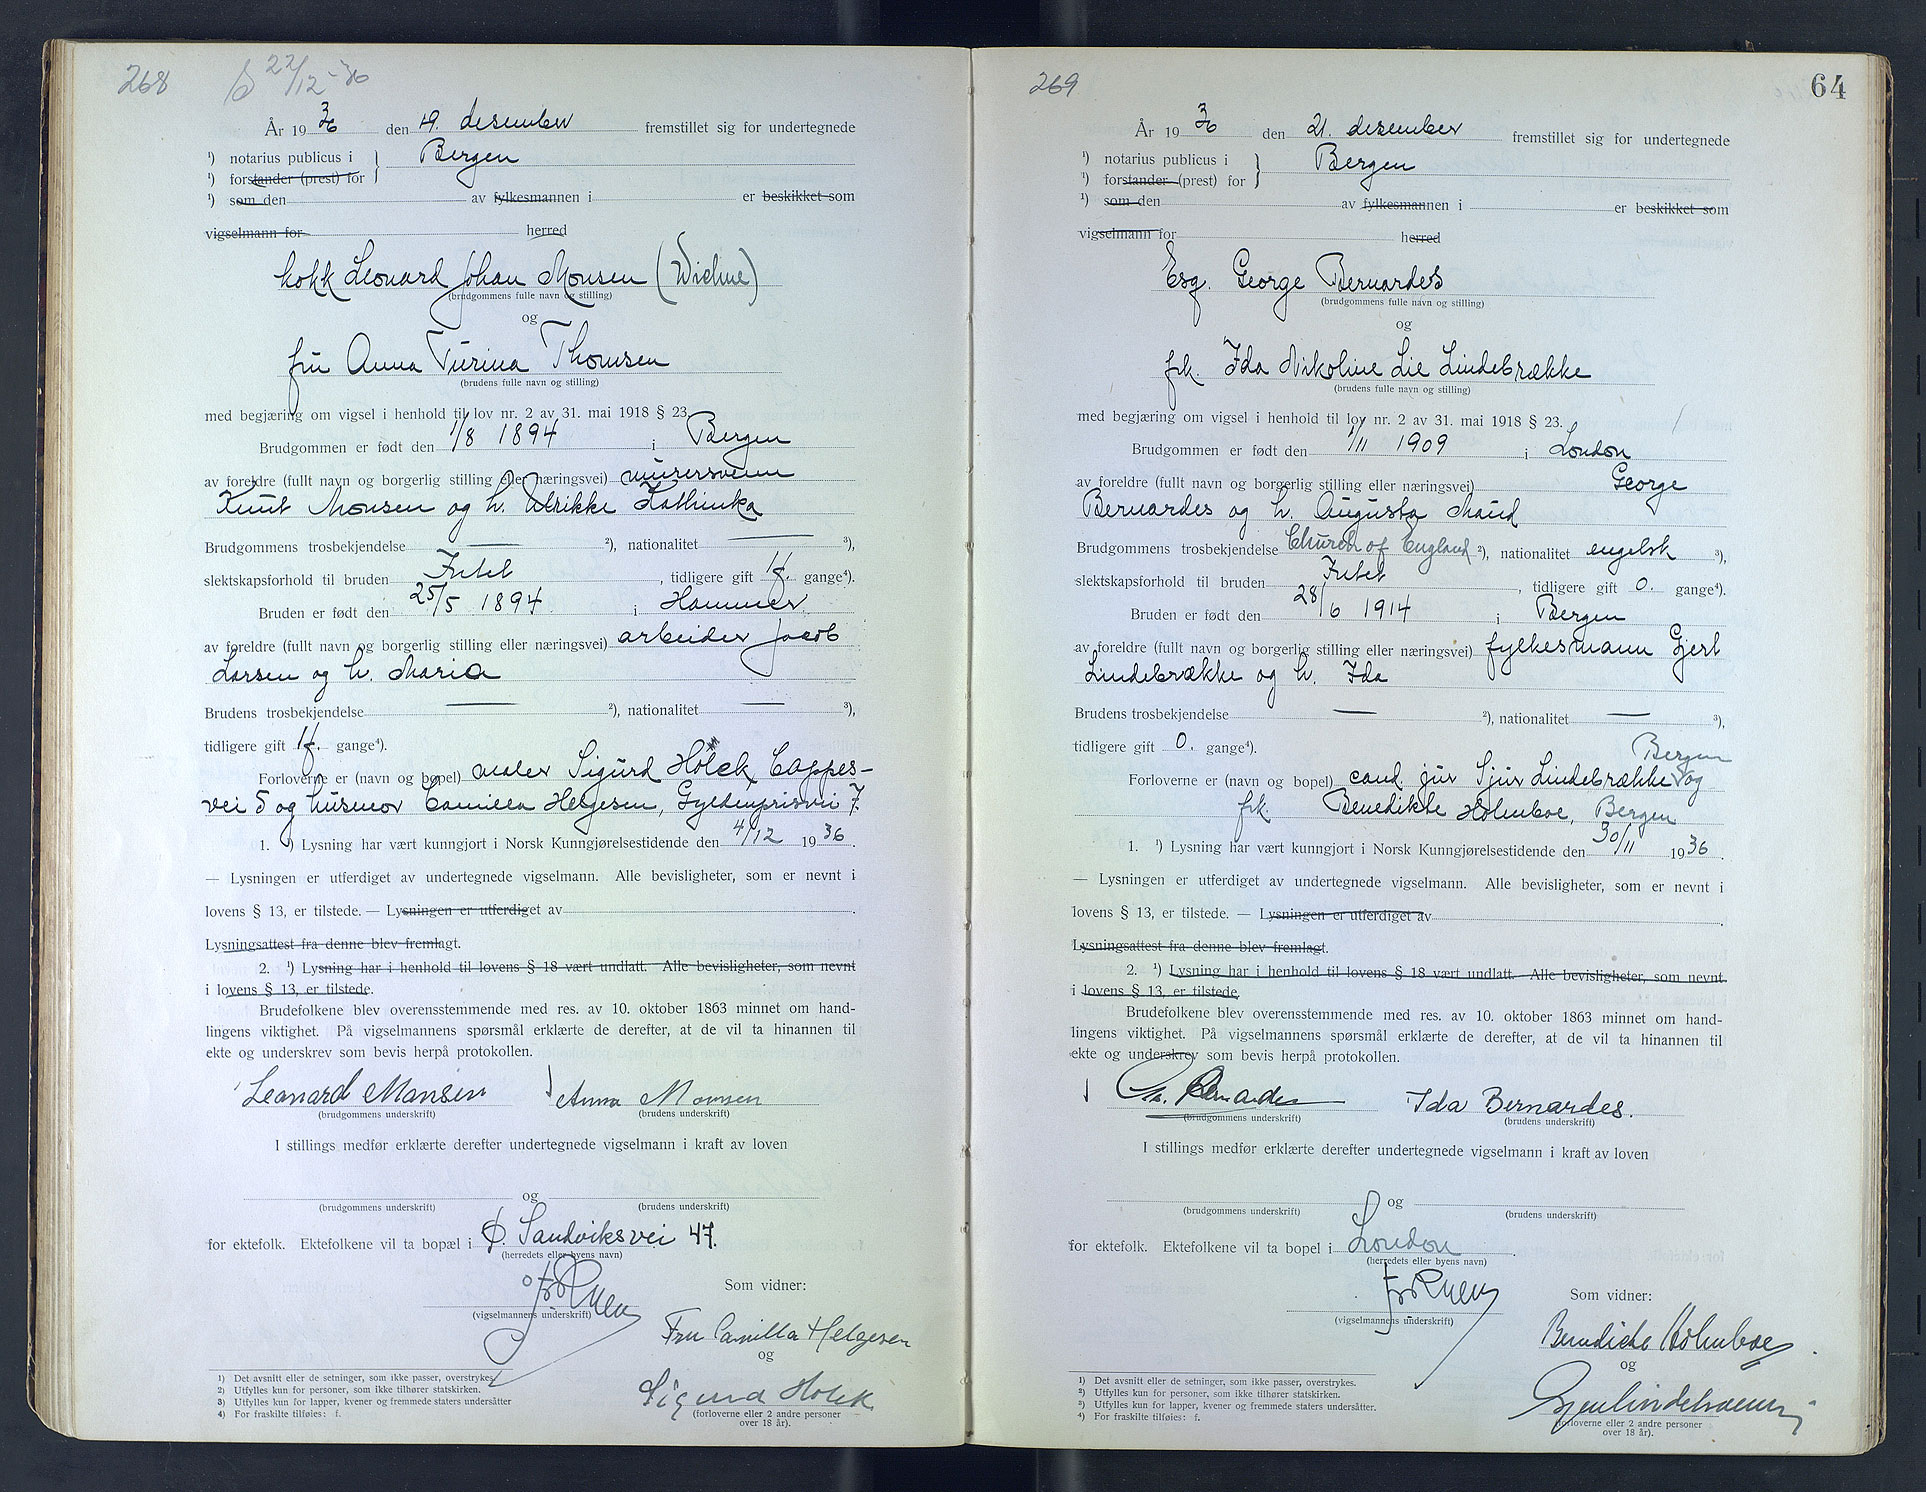 268 22/12-36
År 1936 den 19. desember fremstillet sig for undertegnede
¹) notarius publicus i } Bergen
¹) forstander (prest) for
¹) som den av fylkesmannen i er beskikket som
vigselmann for herred
kokk Leonard Johan Monsen (Wichne)
(brudgommens fulle navn og stilling)
og
fru Anna Turina Thomsen
(brudens fulle navn og stilling)
med begjæring om vigsel i henhold til lov nr. 2 av 31. mai 1918 § 23.
Brudgommen er født den 1/8 1894 i Bergen
av foreldre (fullt navn og borgerlig stilling eller næringsvei) murersvenn
Knut Monsen og h. Ulrikke Kathinka
Brudgommens trosbekjendelse — ²), nationalitet — ³),
slektskapsforhold til bruden Intet, tidligere gift 1 f. gange⁴).
Bruden er født den 25/5 1894 i Hammer
av foreldre (fullt navn og borgerlig stilling eller næringsvei) arbeider Jacob
Larsen og h. Maria
Brudens trosbekjendelse — ²), nationalitet — ³),
tidligere gift 1 f. gange⁴).
Forloverne er (navn og bopel) maler Sigurd Holck Cappes-
vei 5 og husmor Camilla Helgesen, Gyldenprisvei 7
1. ¹) Lysning har vært kunngjort i Norsk Kunngjørelsestidende den 4/12 1936.
— Lysningen er utferdiget av undertegnede vigselmann. Alle bevisligheter, som er nevnt i
lovens § 13, er tilstede. — Lysningen er utferdiget av .
Lysningsattest fra denne blev fremlagt.
2. ¹) Lysning har i henhold til lovens § 18 vært undlatt. Alle bevisligheter, som nevnt
i lovens § 13, er tilstede.
Brudefolkene blev overensstemmende med res. av 10. oktober 1863 minnet om hand-
lingens viktighet. På vigselmannens spørsmål erklærte de derefter, at de vil ta hinannen til
ekte og underskrev som bevis herpå protokollen.
Leonard Monsen Anna Monsen
(brudgommens underskrift) (brudens underskrift)
I stillings medfør erklærte derefter undertegnede vigselmann i kraft av loven
og
(brudgommens underskrift) (brudens underskrift)
for ektefolk. Ektefolkene vil ta bopæl i Ø. Sandviksvei 47.
(herredets eller byens navn)
Som vidner:
(vigselmannens underskrift)
Fru Camilla Helgesen
og
Sigurd Holck
(forloverne eller 2 andre personer
over 18 år).
1) Det avsnitt eller de setninger, som ikke passer, overstrykes.
2) Utfylles kun for personer, som ikke tilhører statskirken.
3) Utfylles kun for lapper, kvener og fremmede staters undersåtter
4) For fraskilte tilføies: f.
269 64
År 1936 den 21. desember fremstillet sig for undertegnede
¹) notarius publicus i } Bergen
¹) forstander (prest) for
¹) som den av fylkesmannen i er beskikket som
vigselmann for herred
Esq. George Bernardes
(brudgommens fulle navn og stilling)
og
frk. Ida Nikoline Lie Lindebrække
(brudens fulle navn og stilling)
med begjæring om vigsel i henhold til lov nr. 2 av 31. mai 1918 § 23.
Brudgommen er født den 1/11 1909 i London
av foreldre (fullt navn og borgerlig stilling eller næringsvei) George
Bernardes og h. Augusta Maud
Brudgommens trosbekjendelse Church of England ²), nationalitet engelsk ³),
slektskapsforhold til bruden Intet, tidligere gift 0. gange⁴).
Bruden er født den 28/6 1914 i Bergen
av foreldre (fullt navn og borgerlig stilling eller næringsvei) fylkesmann Gjert
Lindebrække og h. Ida
Brudens trosbekjendelse — ²), nationalitet — ³),
tidligere gift 0. gange⁴). Bergen
Forloverne er (navn og bopel) cand. jur Sjur Lindebrække og
frk. Benedikte Holmboe, Bergen
1. ¹) Lysning har vært kunngjort i Norsk Kunngjørelsestidende den 30/11 1936.
— Lysningen er utferdiget av undertegnede vigselmann. Alle bevisligheter, som er nevnt i
lovens § 13, er tilstede. — Lysningen er utferdiget av .
Lysningsattest fra denne blev fremlagt.
2. ¹) Lysning har i henhold til lovens § 18 vært undlatt. Alle bevisligheter, som nevnt
i lovens § 13, er tilstede.
Brudefolkene blev overensstemmende med res. av 10. oktober 1863 minnet om hand-
lingens viktighet. På vigselmannens spørsmål erklærte de derefter, at de vil ta hinannen til
ekte og underskrev som bevis herpå protokollen.
Bernardes Ida Bernardes.
(brudgommens underskrift) (brudens underskrift)
I stillings medfør erklærte derefter undertegnede vigselmann i kraft av loven
og
(brudgommens underskrift) (brudens underskrift)
for ektefolk. Ektefolkene vil ta bopel i London.
(herredets eller byens navn)
Som vidner:
(vigselmannens underskrift)
Benedicte Holmboe
og
(forloverne eller 2 andre personer
over 18 år).
1) Det avsnitt eller de setninger, som ikke passer, overstrykes.
2) Utfylles kun for personer, som ikke tilhører statskirken.
3) Utfylles kun for lapper, kvener og fremmede staters undersåtter.
4) For fraskilte tilføies: f.